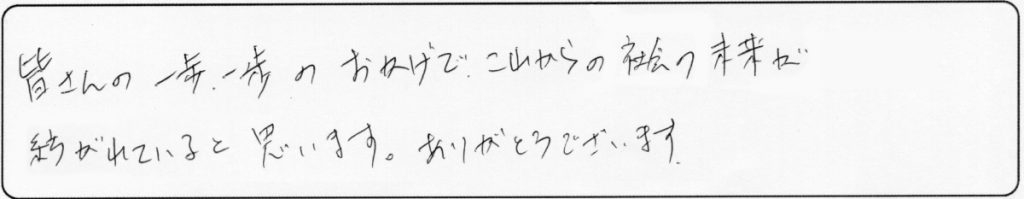 皆さんの一歩、一歩のおかげで、これからの社会の未来が
紡がれていると思います。ありがとうございます。